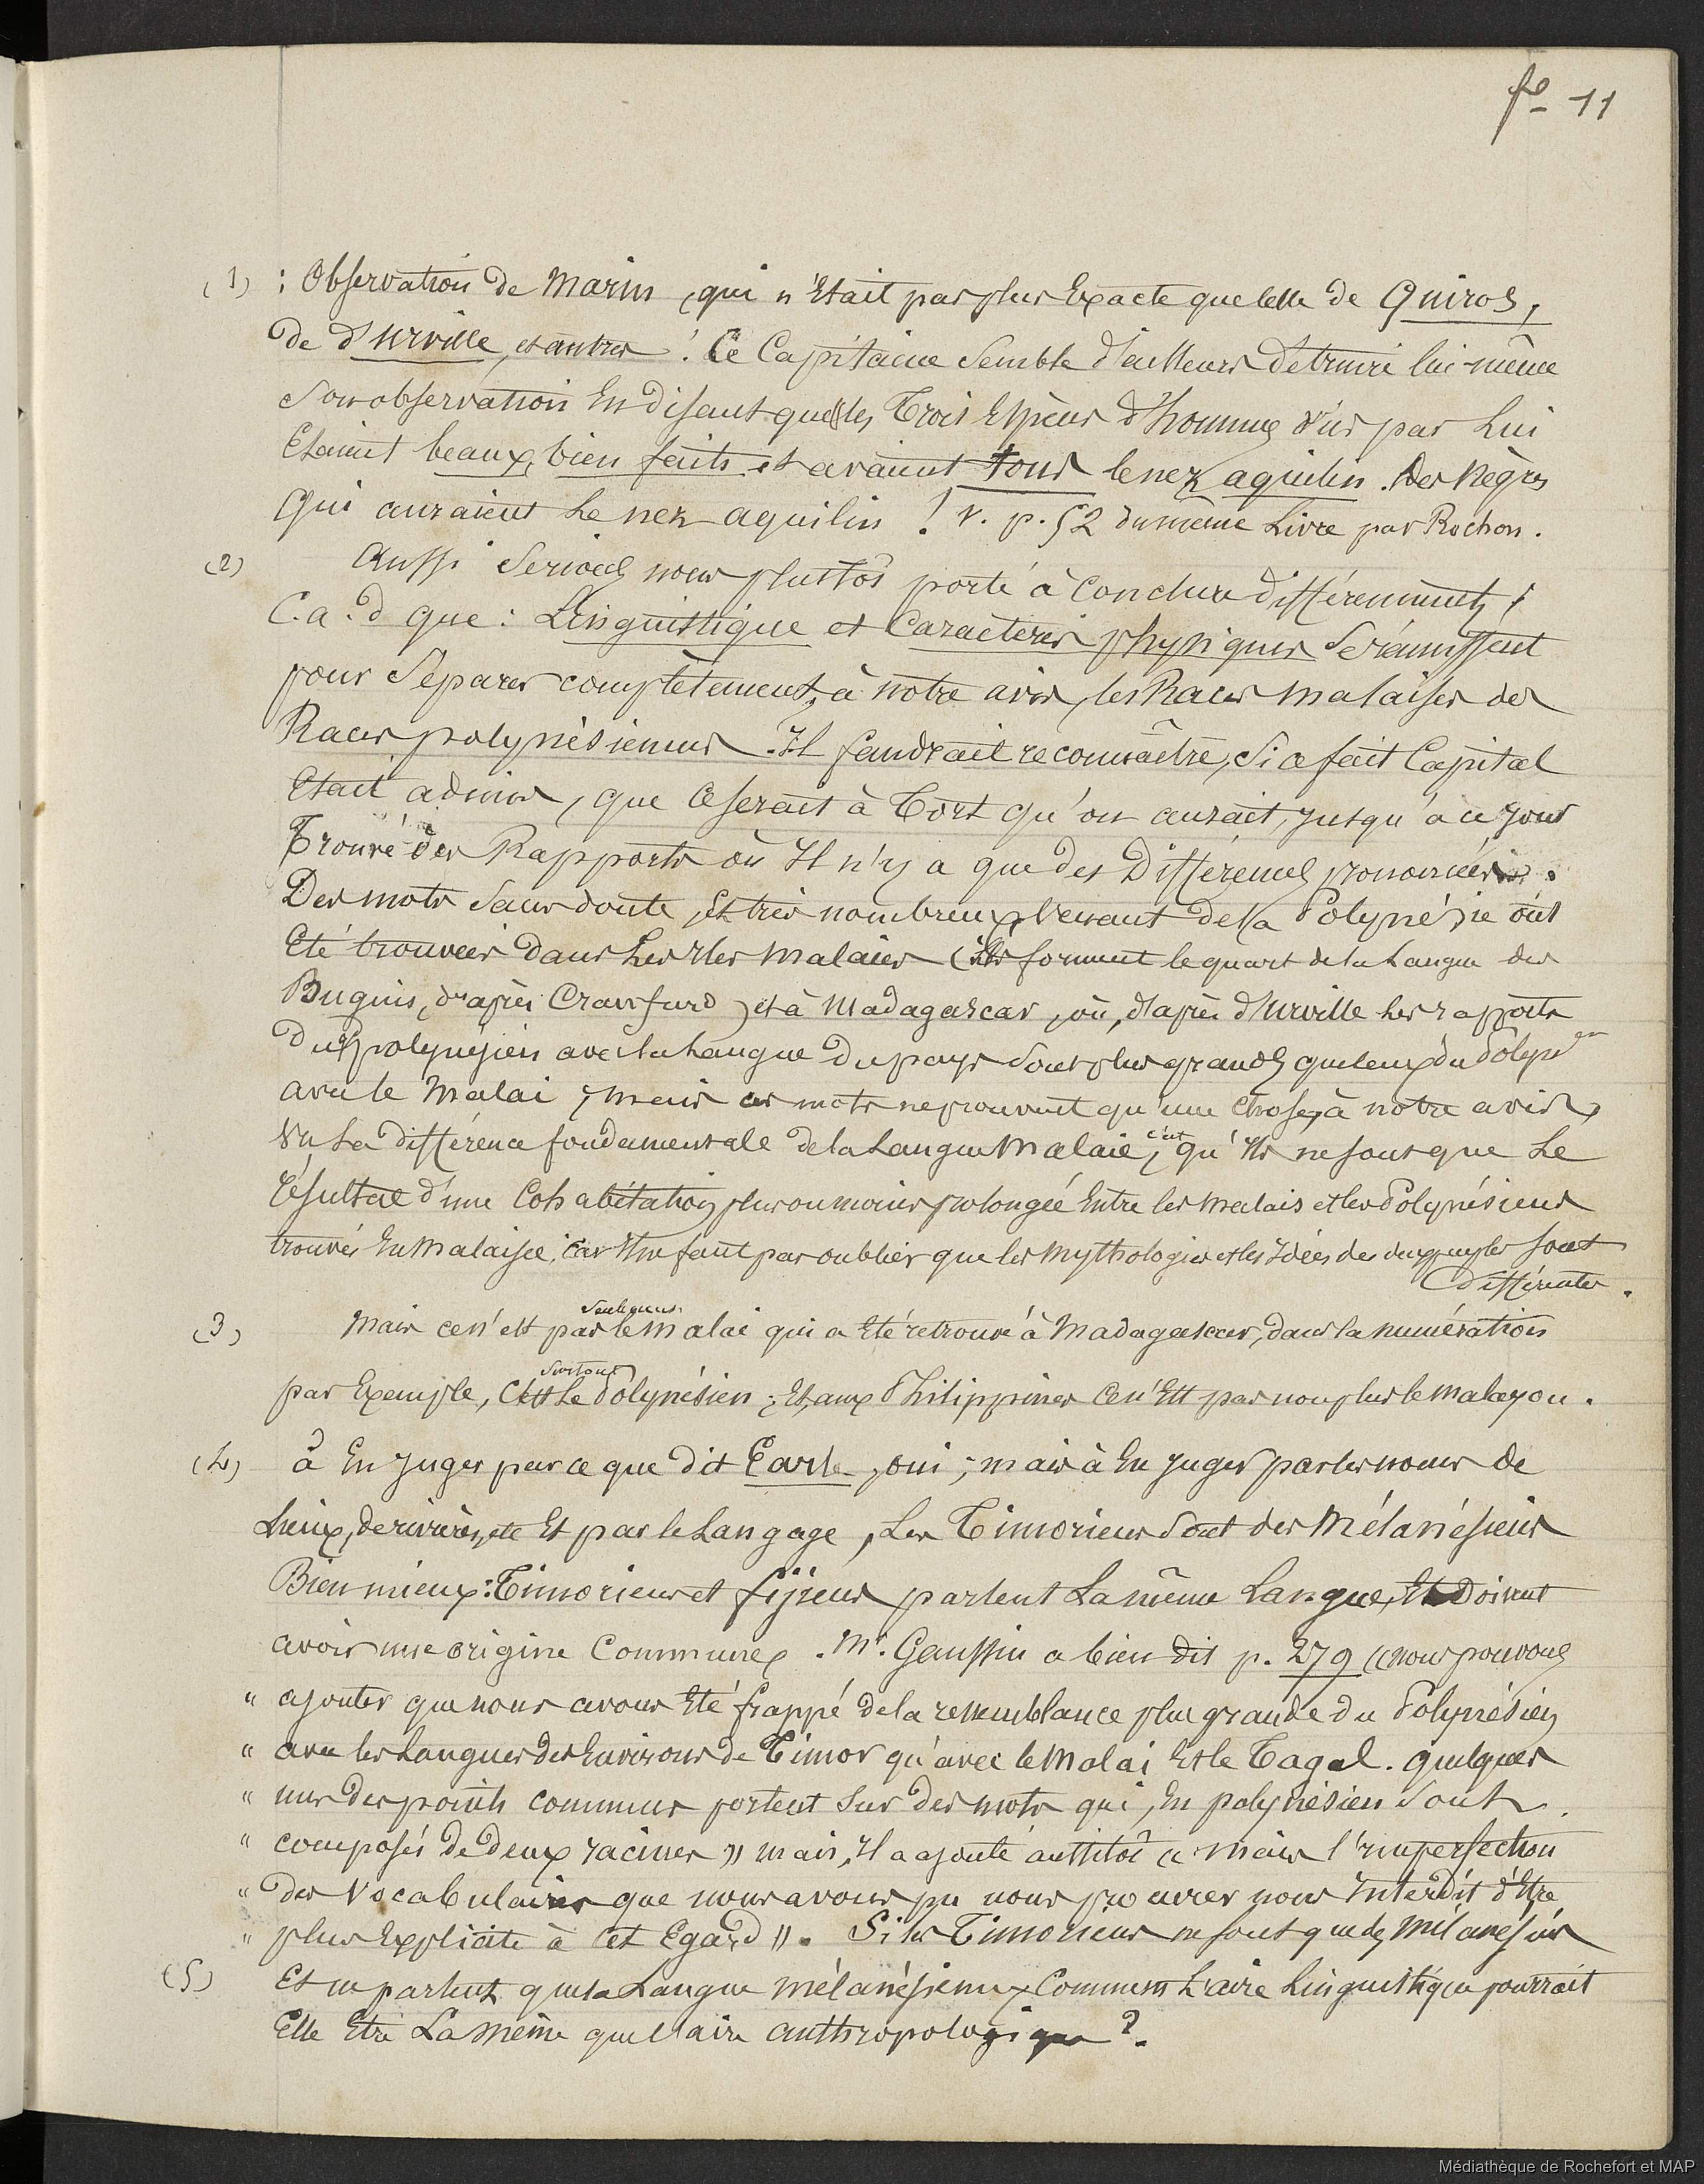 fo 11
(1) : Observation de Marin, qui n'Etait pas plus Exacte que celle de Quiros,
de d'Urville, et autres ! Ce Capitaine Semble d'ailleurs détruire lui-même
Son observation En disant que les Trois Espèces d'hommes vus par Lui
Etaient beaux, bien faits et avaient tous le nez aquilin. Des Nègres
Qui auraient Le nez aquilin ! V. p. 52 du même Livre par Rochon.
(2) Aussi Serions nous plutôt porté à Conclure différemment ;
C. a. d que : Linguistique et Caractères physiques Se réunissent
pour Séparer complètement, à notre avis, les Races malaises des
Races polynésiennes. Il faudrait reconnaître, Si ce fait Capital
Etait admis, que Ce serait à Tort qu'on aurait, jusqu'à ce jour
Trouvé des Rapports où Il n'y a que des Différences prononcées.
Des mots Sans doute, Et très nombreux, Venant de la Polynésie ont
Eté trouvés dans Les Iles Malaies (ils forment le quart de la Langue des
Buguis, d'après Crawfurd) et à Madagascar, où, d'après d'Urville Les rapports
du polynésien avec la Langue du pays Sont plus grands que ceux du Polyn en
avec le Malai ; mais ces mots ne prouvent qu'une Chose, à notre avis,
Vu La différence fondamentale de la Langue Malaie, c'est qu'Ils ne sont que Le
résultat d'une Cohabitation plus ou moins prolongée Entre les Malais et les Polynésiens
trouvés En Malaisie, car Il ne faut pas oublier que les Mythologies et les Idées des deux peuples Sont
différentes.
(3) Mais ce n'est pas Seulement le Malai qui a Eté retrouvé à Madagascar, dans la numération
par Exemple, C'est Surtout Le Polynésien ; Et, aux Philippines Ce n'Est pas non plus le Malayou.
(4) à En Juger par ce que dit Earle, oui ; mais à En Juger par les noms de
Lieux, de rivières, etc Et par le Langage, Les Timoriens Sont des Mélanésiens
Bien mieux : Timoriens et fijiens parlent La même Langue, Et Doivent
avoir une origine Commune. Mr. Gaussin a bien dit p. 279 « nous pouvons
" ajouter que nous avons Eté frappé de la ressemblance plus grande du Polynésien
" avec les Langues des Environs de Timor qu'avec le Malai Et le Tagal. quelques
" uns des points communs portent Sur des mots qui, En polynésien Sont
" composés de deux racines » mais, Il a ajouté aussitôt « mais l'imperfection
" des Vocabulaires que nous avons pu nous procurer nous Interdit d'Etre
" plus Explicite à cet Egard ». Si les Timoriens ne sont que des Mélanésiens
(5) Et ne parlent que la Langue Mélanésienne, Comment L'aire Linguistique pourrait
Elle Etre La même que l'aire anthropologique ?.
Médiathèque de Rochefort et MAP